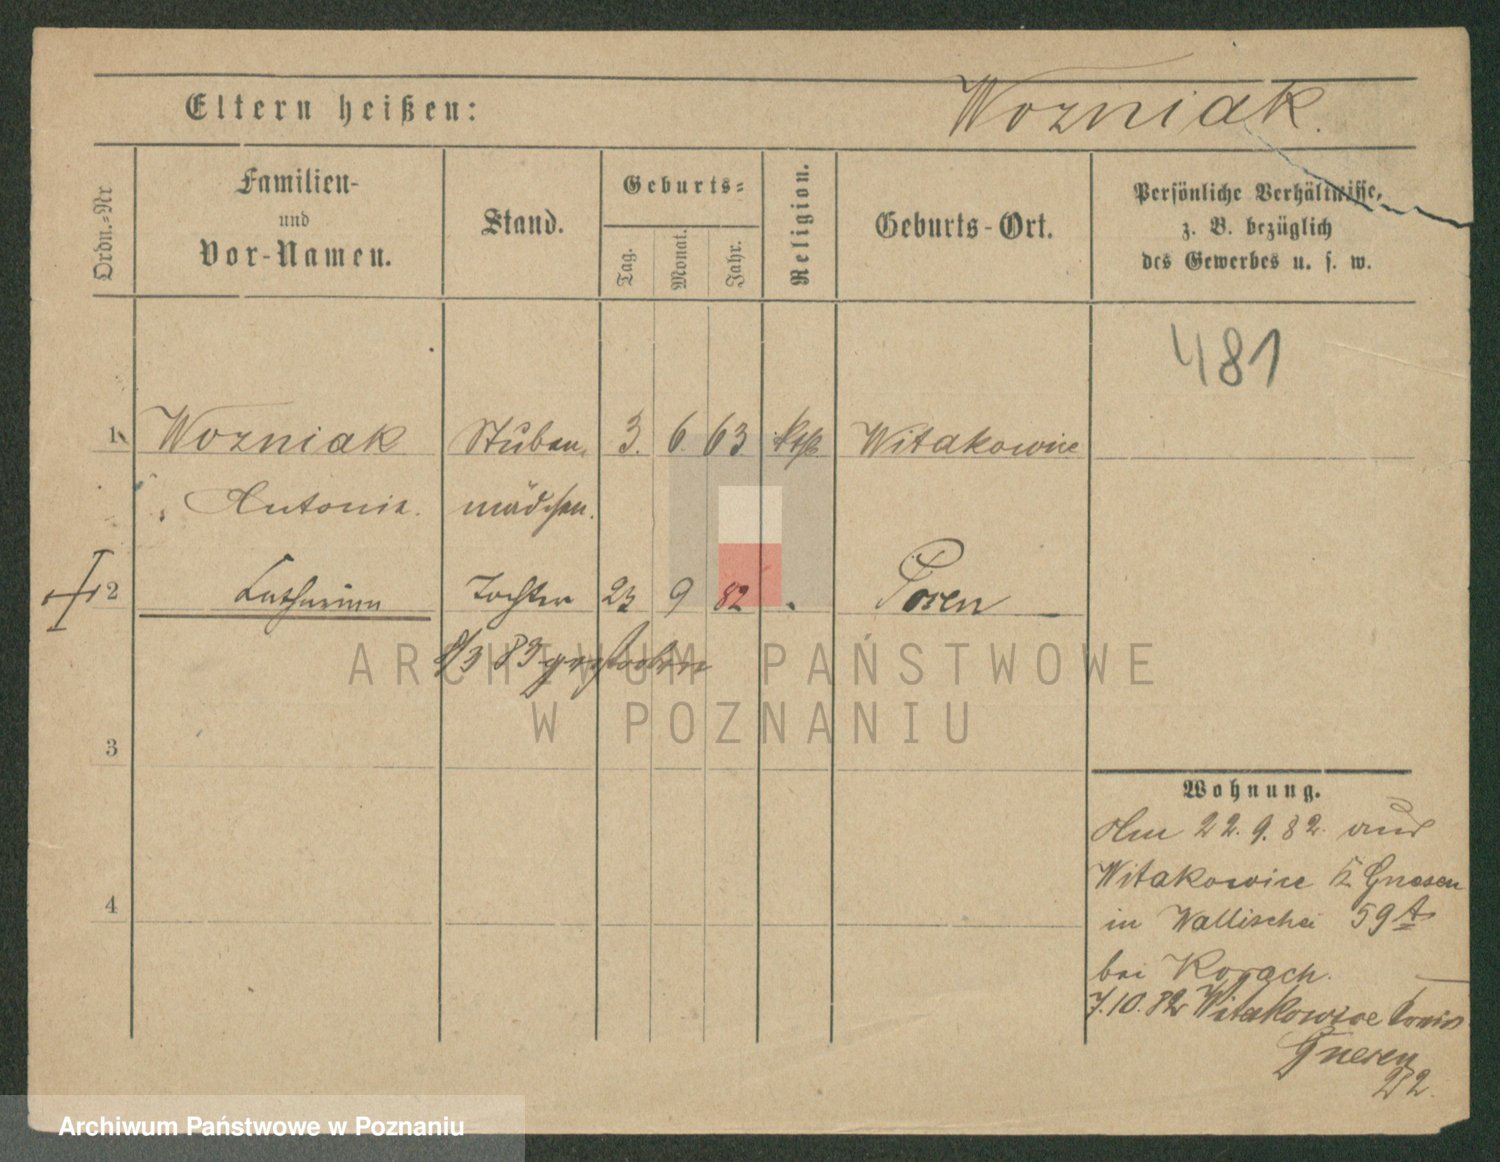 Eltern heißen:
Wozniak.
Ordn.-Nr
Familien-
und
Vor-Namen.
Stand.
Geburts-
Tag.
Monat.
Jahr.
Religion.
Geburts-Ort.
Persönliche Verhältnisse,
z. B. bezüglich
des Gewerbes u. s. w.
481
1 Wozniak Stuben 3. 6. 63 kth. Witakowice
Antonie. mädchen.
2 Catharina Tochter 23 9 82 Posen
8/3 83 gestorben
ARCHIWUM PAŃSTWOWE
W POZNANIU
3
4
Wohnung.
Am 22. 9. 82. aus
Witakowice Gnesen
in Wallischei 59
bei Korach.
7.10.82 Witakowice Kreis
Gnesen
Archiwum Państwowe w Poznaniu